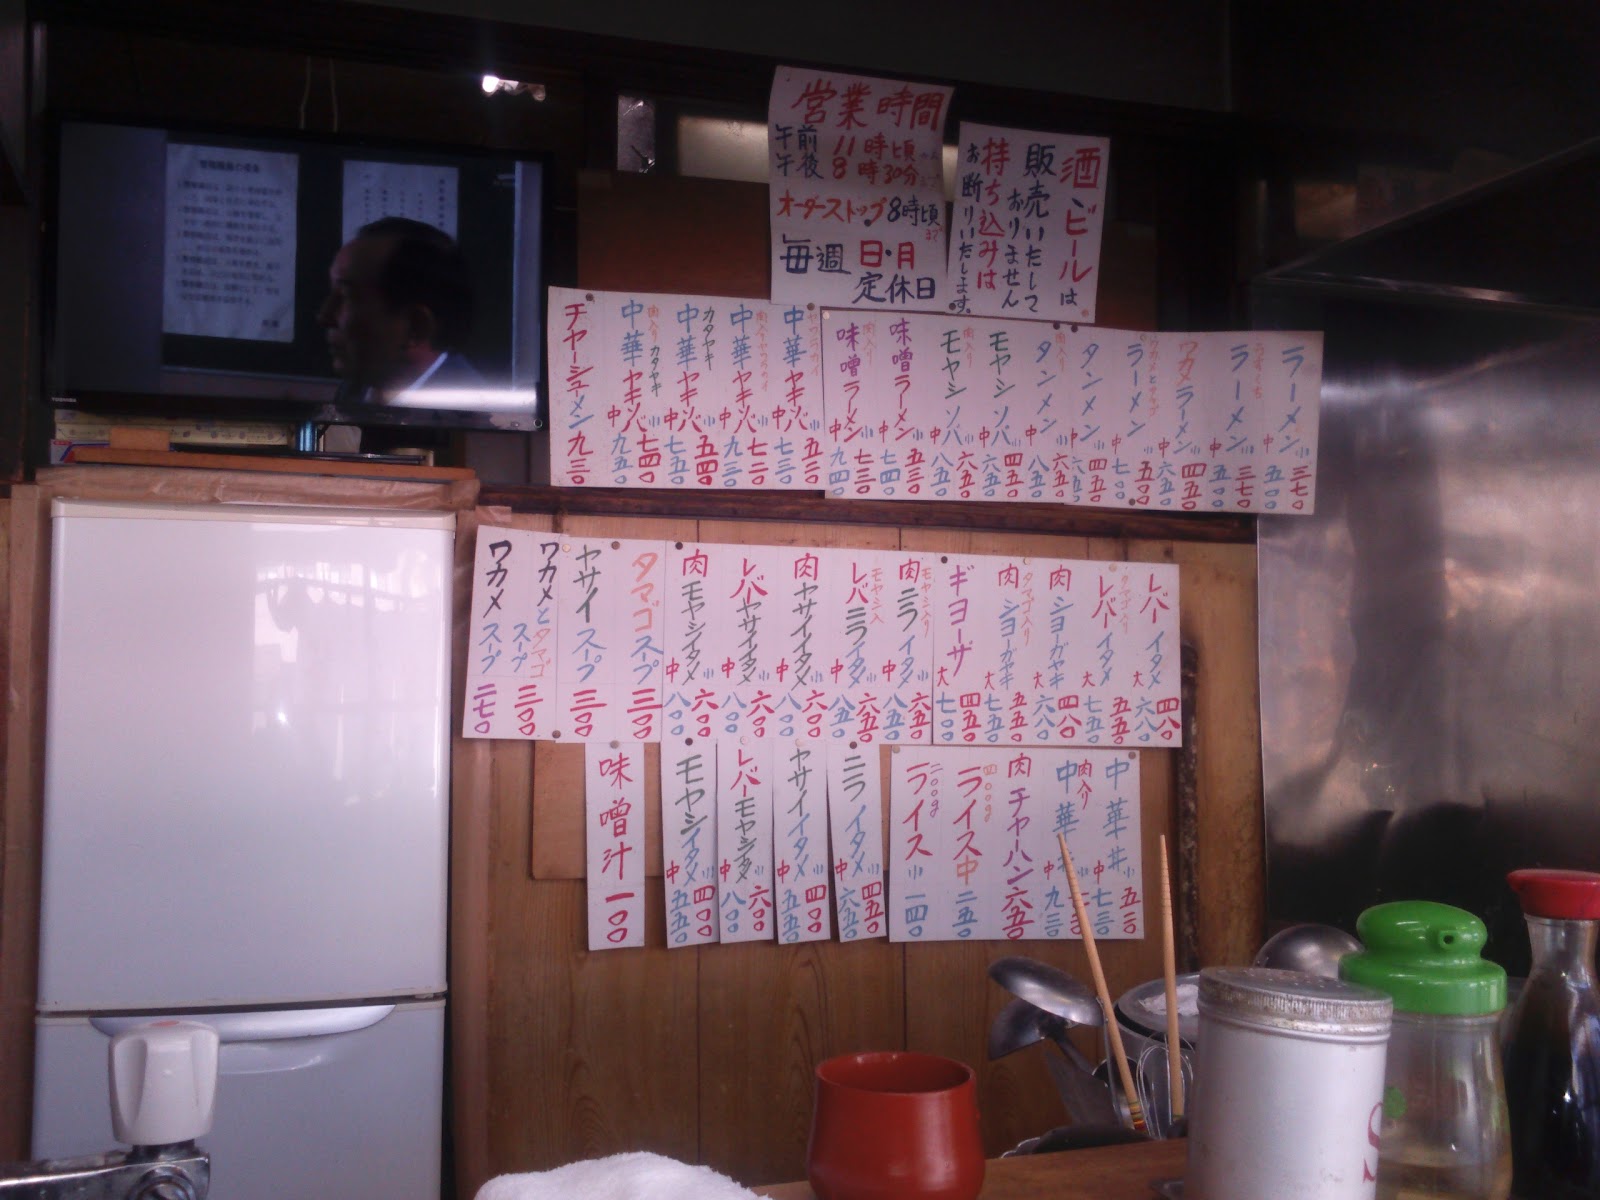 営業時間
午前11時頃から
午後8時30分まで
オーダーストップ8時頃まで
毎週日・月
定休日
酒、ビールは
販売いたして
おりません
持ち込みは
お断りいたします。
ラーメン 小 三七〇 中 五〇〇
ラーメン 小 三七〇 中 五〇〇
ワカメラーメン 小 四五〇 中 六五〇
ワカメとタマゴ ラーメン 小 五〇〇 中 七〇〇
タンメン 小 四五〇 中 六五〇
肉入り タンメン 小 六五〇 中 八五〇
モヤシソバ 小 四五〇 中 六五〇
肉入り モヤシソバ 小 六五〇 中 八五〇
味噌ラーメン 小 五三〇 中 七四〇
肉入り 味噌ラーメン 小 七三〇 中 九四〇
中華ヤキソバ 小 五三〇 中 七三〇
中華ヤキソバ 小 七三〇 中 九三〇
カタヤキ 中華ヤキソバ 小 五四〇 中 七五〇
肉入り カタヤキ 中華ヤキソバ 小 七四〇 中 九五〇
チャーシューメン 九三〇
レバーイタメ 四八〇 大 六八〇
タマゴ入り レバーイタメ 五五〇 大 七五〇
肉ショーガヤキ 四八〇 大 六八〇
タマゴ入り 肉ショーガヤキ 五五〇 大 七五〇
ギョーザ 四五〇 大 七〇〇
モヤシ入り 肉ニライタメ 小 六五〇 中 八五〇
モヤシ入 レバニライタメ 小 六五〇 中 八五〇
肉ヤサイイタメ 小 六〇〇 中 八〇〇
レバーヤサイイタメ 小 六〇〇 中 八〇〇
肉モヤシイタメ 小 六〇〇 中 八〇〇
タマゴスープ 三〇〇
ヤサイスープ 三〇〇
ワカメとタマゴスープ 三〇〇
ワカメスープ 二七〇
中華丼 小 五三〇 中 七三〇
肉入り 中華丼 小 中 九三〇
肉チャーハン 六五〇
四〇〇g ライス 中 二五〇
二〇〇g ライス 小 一四〇
ニライタメ 小 四五〇 中 六五〇
ヤサイイタメ 小 四〇〇 中 五五〇
レバーモヤシイタメ 小 六〇〇 中 八〇〇
モヤシイタメ 小 四〇〇 中 五五〇
味噌汁 一〇〇
TOSHIBA
S